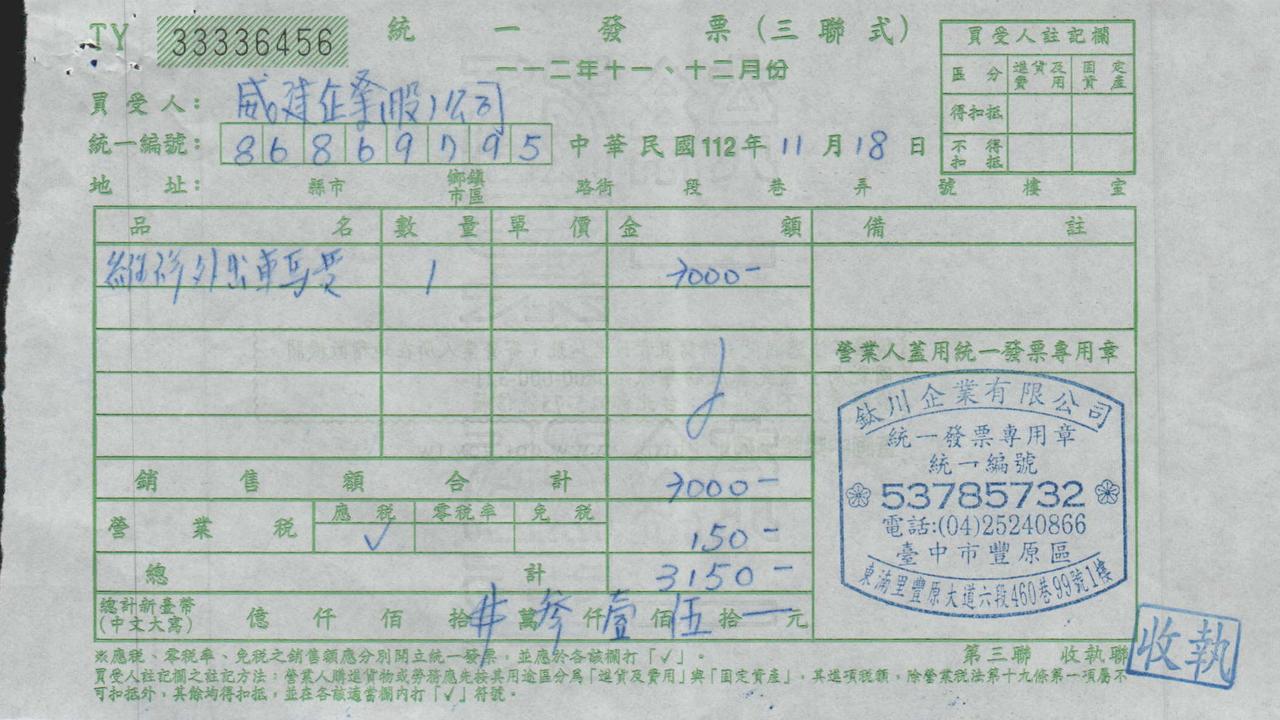 TY 33336456 統一發票(三聯式)
一一二年十一、十二月份
買受人註記欄
區分 進貨及費用 固定資產
得扣抵
不得扣抵
買受人: 威建企業(股)公司
統一編號: 86869795 中華民國112年11月18日
地址: 縣市 鄉鎮市區 路街 段 巷 弄 號 樓 室
品名 數量 單價 金額 備註
維修外出車馬費 1 3000-
營業人蓋用統一發票專用章
鈦川企業有限公司
統一發票專用章
統一編號
53785732
電話:(04)25240866
臺中市豐原區
東湳里豐原大道六段460巷99號1樓
銷售額合計 3000-
營業稅 應稅 ✓ 零稅率 免稅 150-
總計 3150-
總計新臺幣(中文大寫) 億 仟 佰 拾 # 萬 參 仟 壹 佰 伍 拾 — 元
※應稅、零稅率、免稅之銷售額應分別開立統一發票,並應於各該欄打「✓」。
第三聯 收執聯
收執
買受人註記欄之註記方法:營業人購進貨物或勞務應先按其用途區分為「進貨及費用」與「固定資產」,其進項稅額,除營業稅法第十九條第一項屬不
可扣抵外,其餘均得扣抵,並在各該適當欄內打「✓」符號。